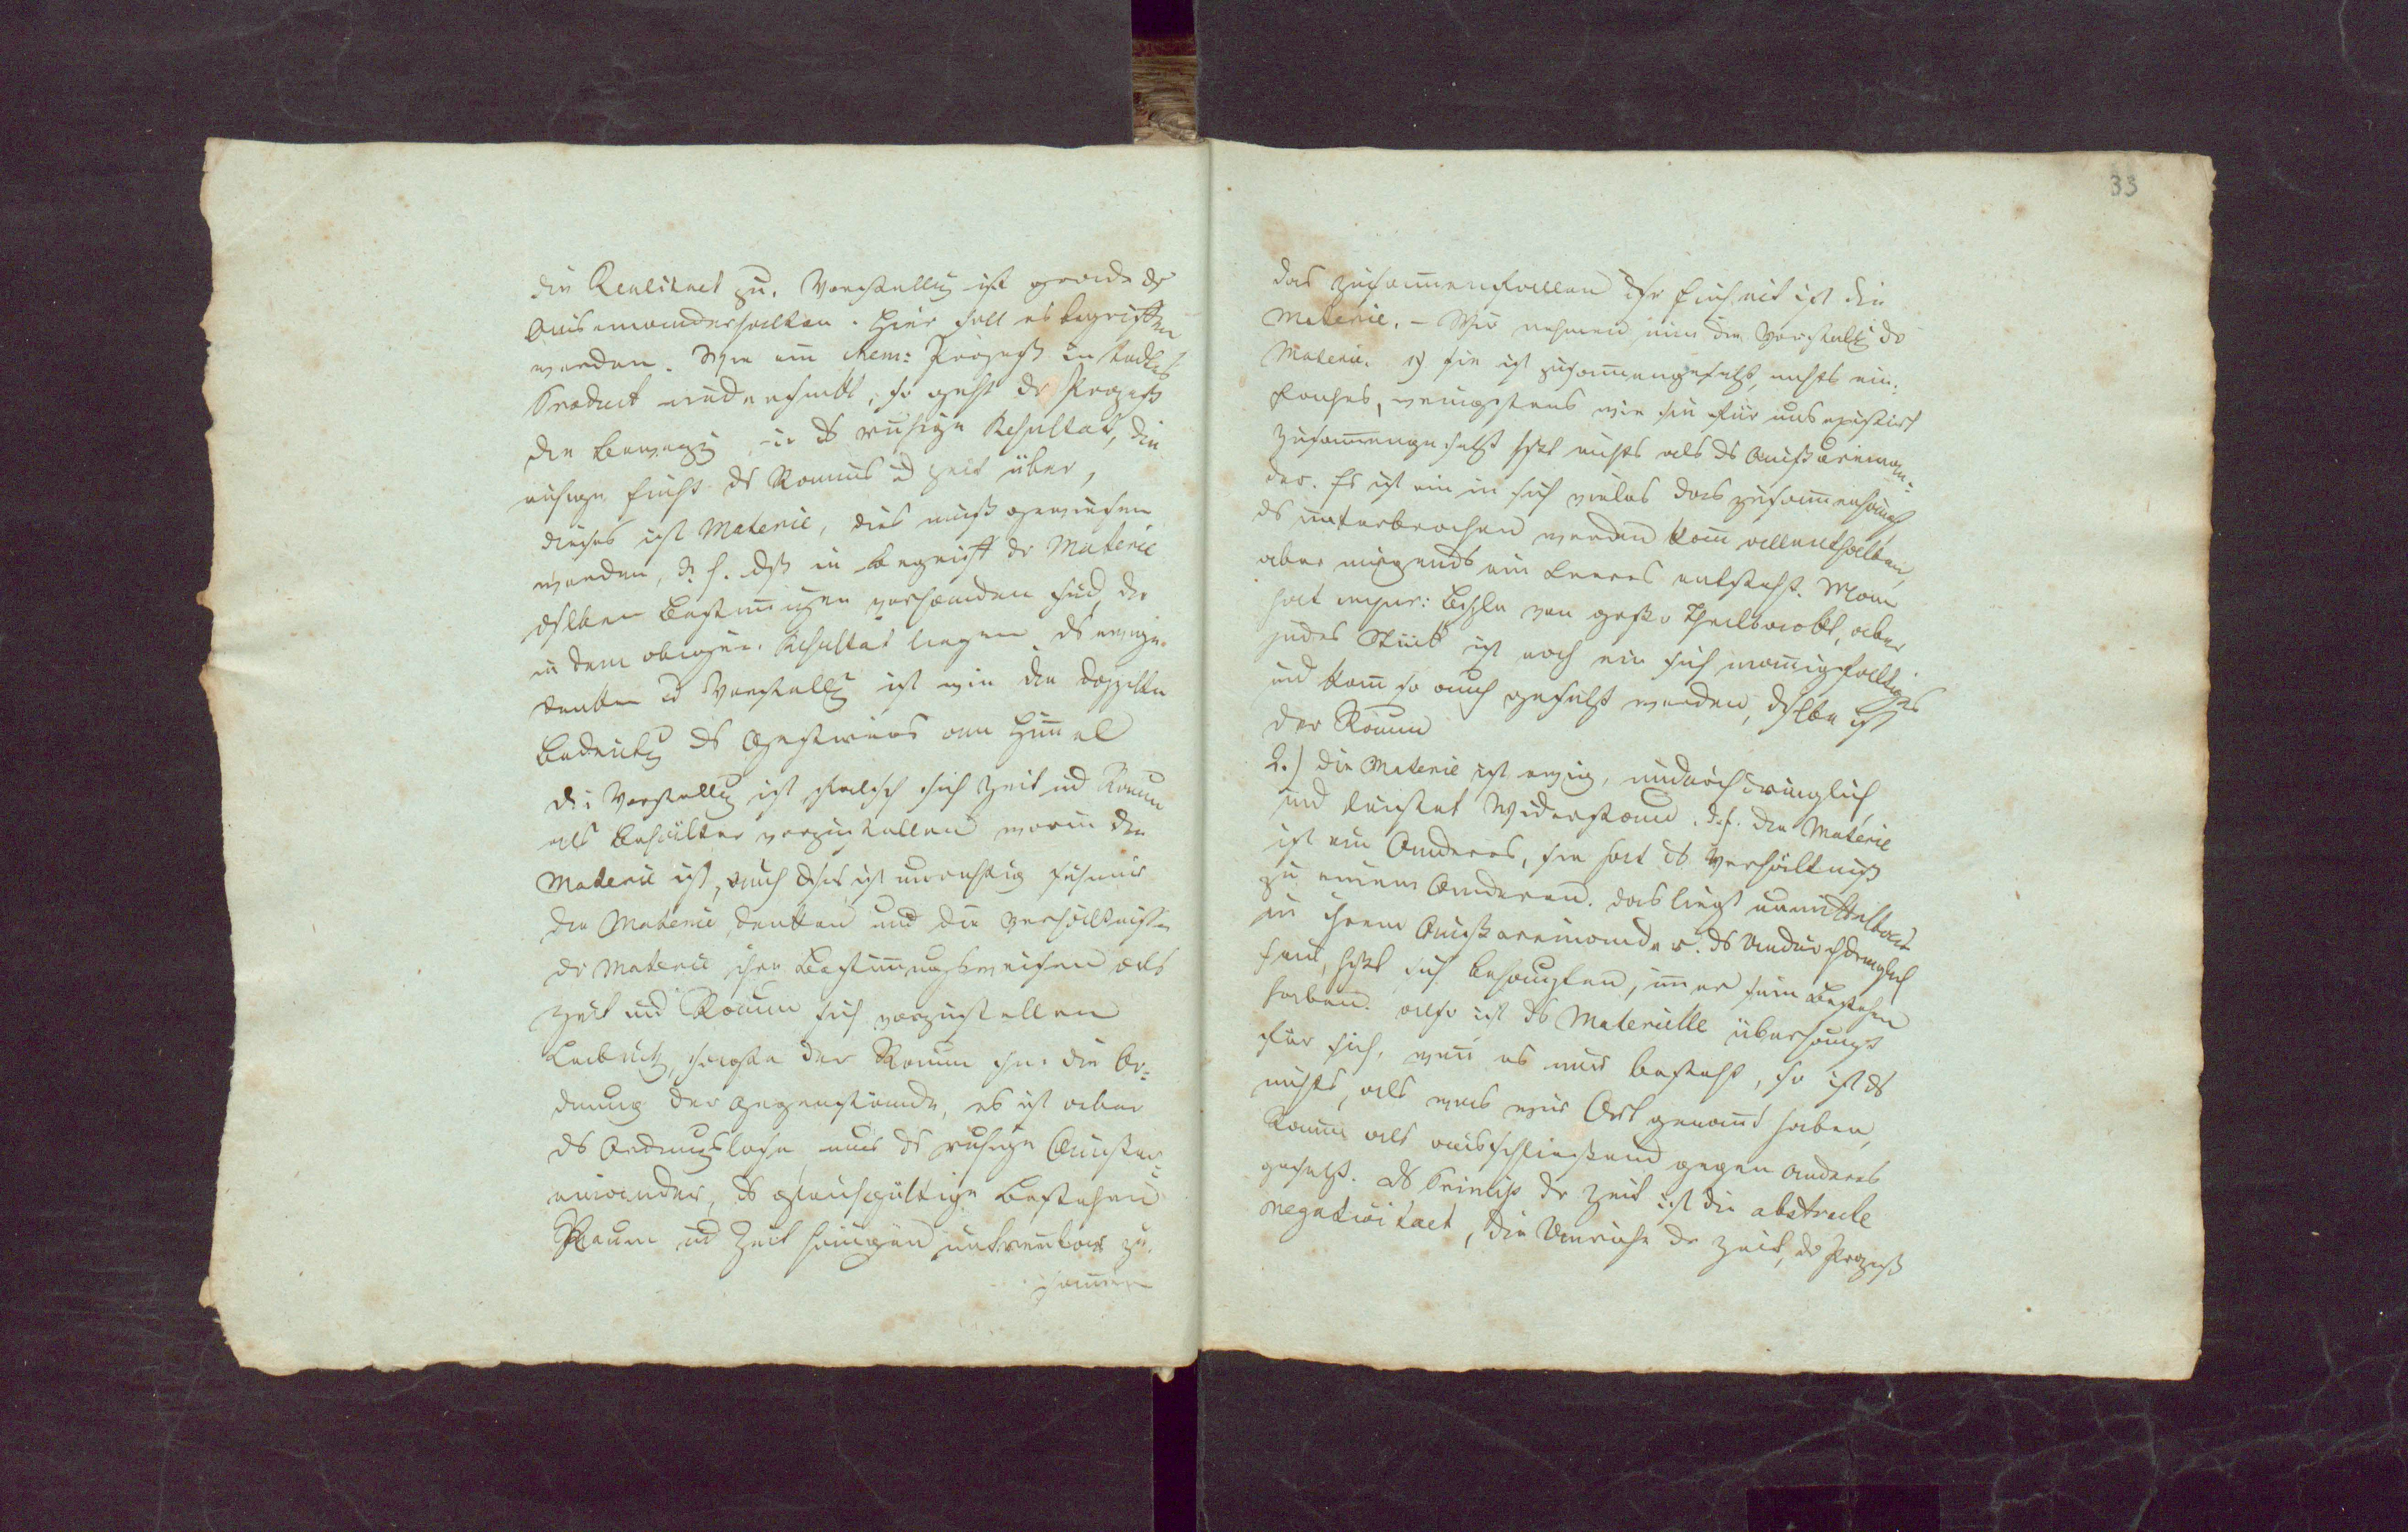 die Realitaet zu. Vorstellug ist grade ds
Auseinanderhalten. Hier soll es begriffen
werden. Wie ein chem: Prozeß in todtes
Product niederschlägt, so geht dr Prozeß
die Bewegug in ds ruhige Resultat, die
ruhige Einht ds Raums ud Zeit über,
dieses ist Materie, dies muß gewiesen
werden, d. h. dß in Begriff dr Materie
dslben Bestimugen vorhanden sind, die
in dem obigen Resultat liegen
denken ud Vorstellg ist wie die doppelte
Bedeutg ds Gestirns am Himel
die Vorstellug ist falsch sich Zeit und Raum
als Behälter vorzustellen worin die
Materie ist, auch dses ist unrichtig sich nur
die Materie denken und die Verhältnisse
dr Materie ihre Bestimungsweisen als
Zeit und Raum sich vorzustellen
Leibnitz, sagte der Raum sei die Or-
dnung der Gegenstände, es ist aber
ds Ordnungslose nur ds ruhige Außer-
einander, ds gleichgültige Bestehen
Raum ud Zeit hängen untrenbar zu-
sammen
33
das Zusammenfallen ihr Einheit ist die
Materie. – Wir nehmen nun die Vorstellg dr
Materie. 1) sie ist zusammengesetzt, nichts ein-
faches, wenigstens wie sie für uns existirt
zusammengesetzt hßt nichts als ds Außereinan-
der. Es ist ein in sich vieles das zusammenhängt
ds unterbrochen werden kann allenthalben,
aber nirgends ein Leeres entsteht. Man
hat
jedes Stück ist noch ein sich mannigfaltiges
und kann so auch gesetzt werden, dslbe ist
der Raum
2.) die Materie ist ewig, undurchdringlich
und leistet Widerstand. d.h. die Materie
ist ein Anderes, sie hat ds Verhältniß
zu einem Anderen. das liegt unmittelbar
in ihrem Außereinander. ds Undurchdringlich
sein, hßt sich behaupten, immer sein Bestehen
haben. also ist ds Materielle überhaupt
für sich, wenn es nur besteht, so ist ds
nichts, als was wir Ort genannt haben,
Raum als ausschließend gegen anderes
gesetzt. ds Princip dr Zeit ist die abstracte
negativitaet, die Unruhe dr Zeit, dr Prozeß